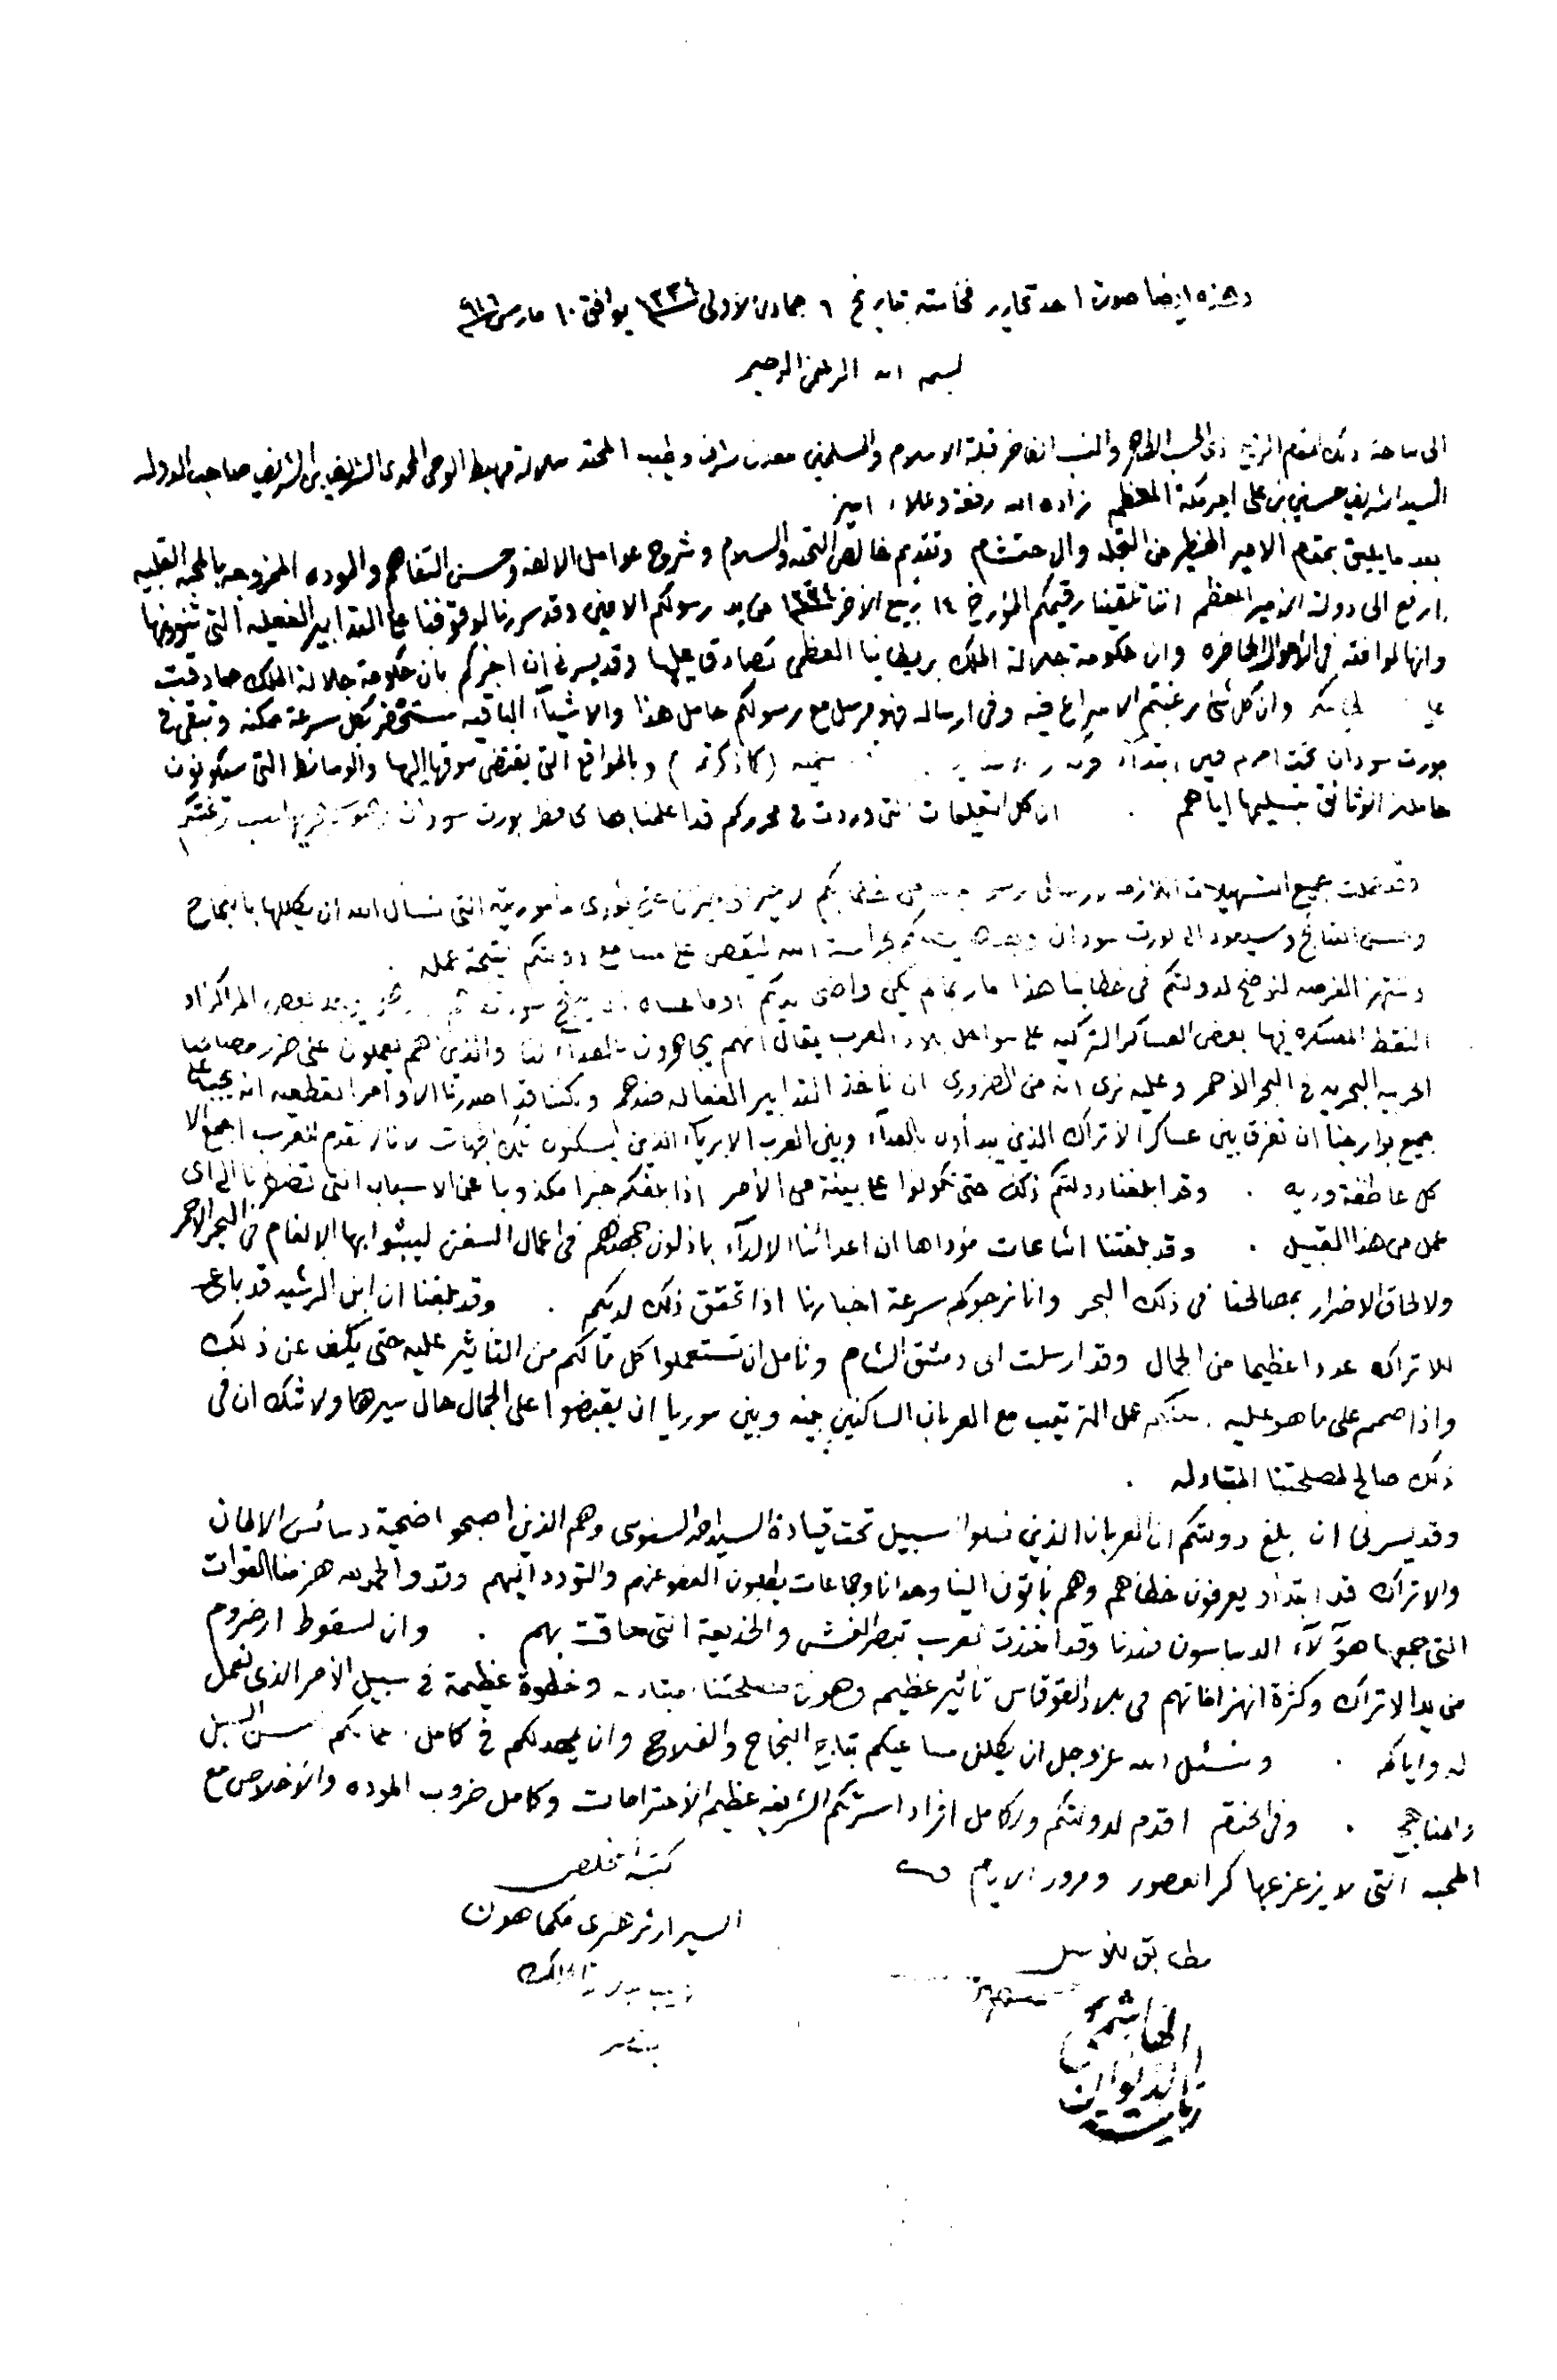 وهذه ايضا صورة احد تحارير فخامته بتاريخ ٦ جمادى الاولى ١٣٣٤ يوافق ١٠ مارس ٩١٦
بسم الله الرحمن الرحيم
الى ساحة ذلك المقام الرفيع ذى الحسب الطاهر والنسب الفاخر قبلة الاسلام والمسلمين معدن الشرف وطيب المحتد سلالة مهبط الوحى المحمدى الشريف بن الشريف صاحب الدوله
السيد الشريف حسين بن على امير مكة المعظم زاده الله رفعة وعلاء امين
بعد ما يليق بمقام الامير الخطير من التجله والاحتشام وتقديم خالص التحيه والسلام وشروح عوامل الالفه وحسن التفاهم والموده الممزوجه بالمحبه القلبيه
ارفع الى دولة الامير المعظم اننا تلقينا رقيمكم المؤرخ ١٤ ربيع الاخر ١٣٣٤ من يد رسولكم الامين وقد سررنا لوقوفنا على التدابير الفعليه التى تنوونها
وانها لموافقه فى الاحوال الحاضره وان حكومة جلالة الملك بريطانيا العظمى تصادق عليها وقد يسرنى ان اخبركم بان حكومة جلالة الملك صادقت
على وان كل شئ رغبتم الاسراع فيه وفى ارساله فهو مرسل مع رسولكم حامل هذا والاشياء الباقيه ستحضر بكل سرعة ممكنه وتبقى فى
بورت سودان تحت امركم لحين ابتداء (كما ذكرتم) وبالمواقع التى يقتضى سوقها اليها والوسائط التى سيكونون
حاملين الوثائق بتسليمها اياهم . ان كل التعليمات التى وردت فى محرركم قد اعلمنا بها محافظ بورت سودان حسب رغبتكم
وقد عملت جميع التسهيلات اللازمه لارسال رسول حامل خطابكم حتى يؤدى مأموريته التى نسأل الله ان يكللها بالنجاح
وحسن النتائج وسيعود الى بورت سودان وبعدها بحراسة الله ليقص على مسامع دولتكم نتيجة عمله .
وننتهز الفرصه لنوضح لدولتكم فى خطابنا هذا ما ربما لم يكن واضحا لديكم او ما عساه يوجد بعض المراكز او
النقط المعسكره فيها بعض العساكر التركيه على سواحل بلاد العرب يقال انهم يجاهرون بالعداء لنا والذين هم يعملون على ضرر مصالحنا
الحربيه البحريه فى البحر الاحمر وعليه نرى انه من الضرورى ان ناخذ التدابير الفعاله ضدهم ولكننا قد اصدرنا الاوامر القطعيه انه يجب على
جميع بوارجنا ان تفرق بين عساكر الاتراك الذين يبدأون بالعداء وبين العرب الابرياء الذين يسكنون تلك الجهات لاننا نقدم للعرب اجمع الا
كل عاطفة وديه . وقد ابلغنا دولتكم ذلك حتى تكونوا على بينة من الامر اذا بلغكم خبرا مكذوبا عن الاسباب التى تضطرنا الى اى
عمل من هذا القبيل . وقد بلغتنا اشاعات مؤداها ان اعدائنا الالداء باذلون جهدهم فى اعمال السفن ليبثوا بها الالغام فى البحر الاحمر
ولالحاق الاضرار بمصالحنا فى ذلك البحر وانا نرجوكم سرعة اخبارنا اذا تحقق ذلك لديكم . وقد بلغنا ان ابن الرشيد قد باع
للاتراك عددا عظيما من الجمال وقد ارسلت الى دمشق الشام ونامل ان تستعملوا كل ما لكم من التأثير عليه حتى يكف عن ذلك
واذا صمم على ما هو عليه عمل الترتيب مع العربان الساكنين بينه وبين سوريا ان يقبضوا على الجمال حال سيرها ولا شك ان فى
ذلك صالح لمصلحتنا المتبادله .
وقد يسرنى ان ابلغ دولتكم ان العربان الذين ضلوا السبيل تحت قيادة السيد احمد السنوسى وهم الذين اصبحوا ضحية دسائس الالمان
والاتراك قد ابتدأو يعرفون خطأهم وهم يأتون الينا وحدانا وجماعات يطلبون العفو عنهم والتودد اليهم وقد والحمد لله هزمنا القوات
التى جمعها هؤلاء الدساسون ضدنا وقد اخذت العرب تبصر الغش والخديعة التى حاقت بهم . وان لسقوط ارضروم
من يد الاتراك وكثرة انهزاماتهم فى بلاد القوقاس تأثير عظيم وهو فى مصلحتنا المتبادله وخطوة عظيمة فى سبيل الامر الذى نعمل
له واياكم . ونسئل الله عز وجل ان يكلل مساعيكم بتاج النجاح والفلاح وان يمهد لكم فى كامل اعمالكم احسن السبل
والمناهج . وفى الختام اقدم لدولتكم ولكامل افراد اسرتكم الشريفه عظيم الاحترامات وكامل ضروب الموده والاخلاص مع
المحبه التى لا يزعزعها كر العصور ومرور الايام
كتبه المخلص
السير ارثر هنرى مكماهون
نائب جلالة الملك
بمصر
مطابق للاصل
رئاسة
الديوان
الهاشمى